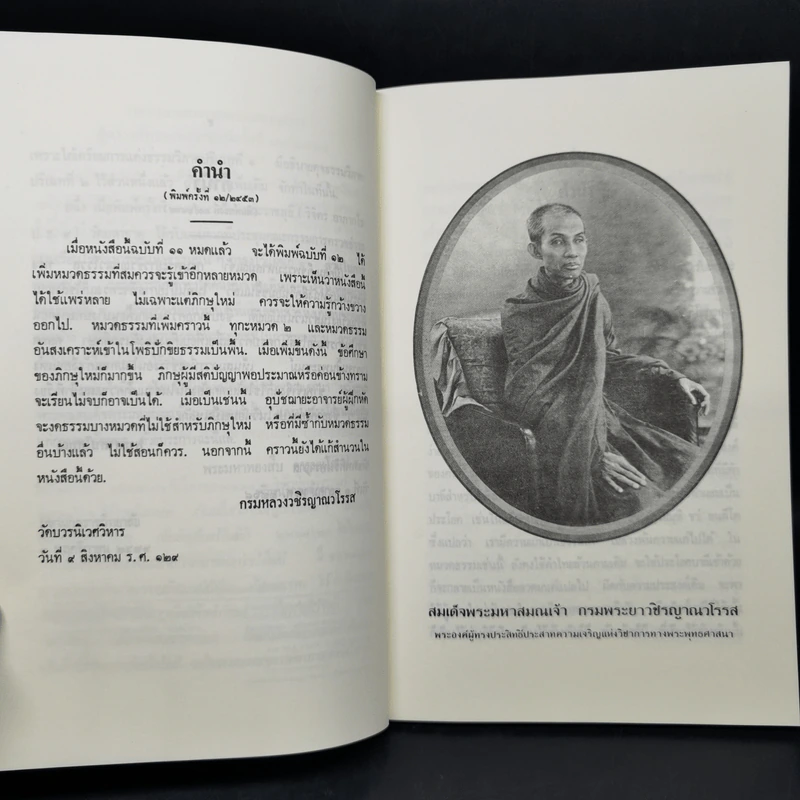 คำนำ
(พิมพ์ครั้งที่ ๑๒/๒๔๕๓)
เมื่อหนังสือนี้ฉบับที่ ๑๑ หมดแล้ว จะได้พิมพ์ฉบับที่ ๑๒ ได้
เพิ่มหมวดธรรมที่สมควรจะรู้เข้าอีกหลายหมวด เพราะเห็นว่าหนังสือนี้
ได้ใช้แพร่หลาย ไม่เฉพาะแต่ภิกษุใหม่ ควรจะให้ความรู้กว้างขวาง
ออกไป. หมวดธรรมที่เพิ่มคราวนี้ ทุกะหมวด ๒ และหมวดธรรม
อันสงเคราะห์เข้าในโพธิปักขิยธรรมเป็นพื้น. เมื่อเพิ่มขึ้นดังนี้ ข้อศึกษา
ของภิกษุใหม่ก็มากขึ้น ภิกษุผู้มีสติปัญญาพอประมาณหรือค่อนข้างทราม
จะเรียนไม่จบก็อาจเป็นได้. เมื่อเป็นเช่นนี้ อุปัชฌายะอาจารย์ผู้ฝึกหัด
จะงดธรรมบางหมวดที่ไม่ใช้สำหรับภิกษุใหม่ หรือที่มีซ้ำกับหมวดธรรม
อื่นบ้างแล้ว ไม่ใช้สอนก็ควร. นอกจากนี้ คราวนี้ยังได้แก้สำนวนใน
หนังสือนี้ด้วย.
กรมหลวงวชิรญาณวโรรส
วัดบวรนิเวศวิหาร
วันที่ ๙ สิงหาคม ร.ศ. ๑๒๙
สมเด็จพระมหาสมณเจ้า กรมพระยาวชิรญาณวโรรส
พระองค์ผู้ทรงประสิทธิ์ประสาทความเจริญแห่งวิชาการทางพระพุทธศาสนา